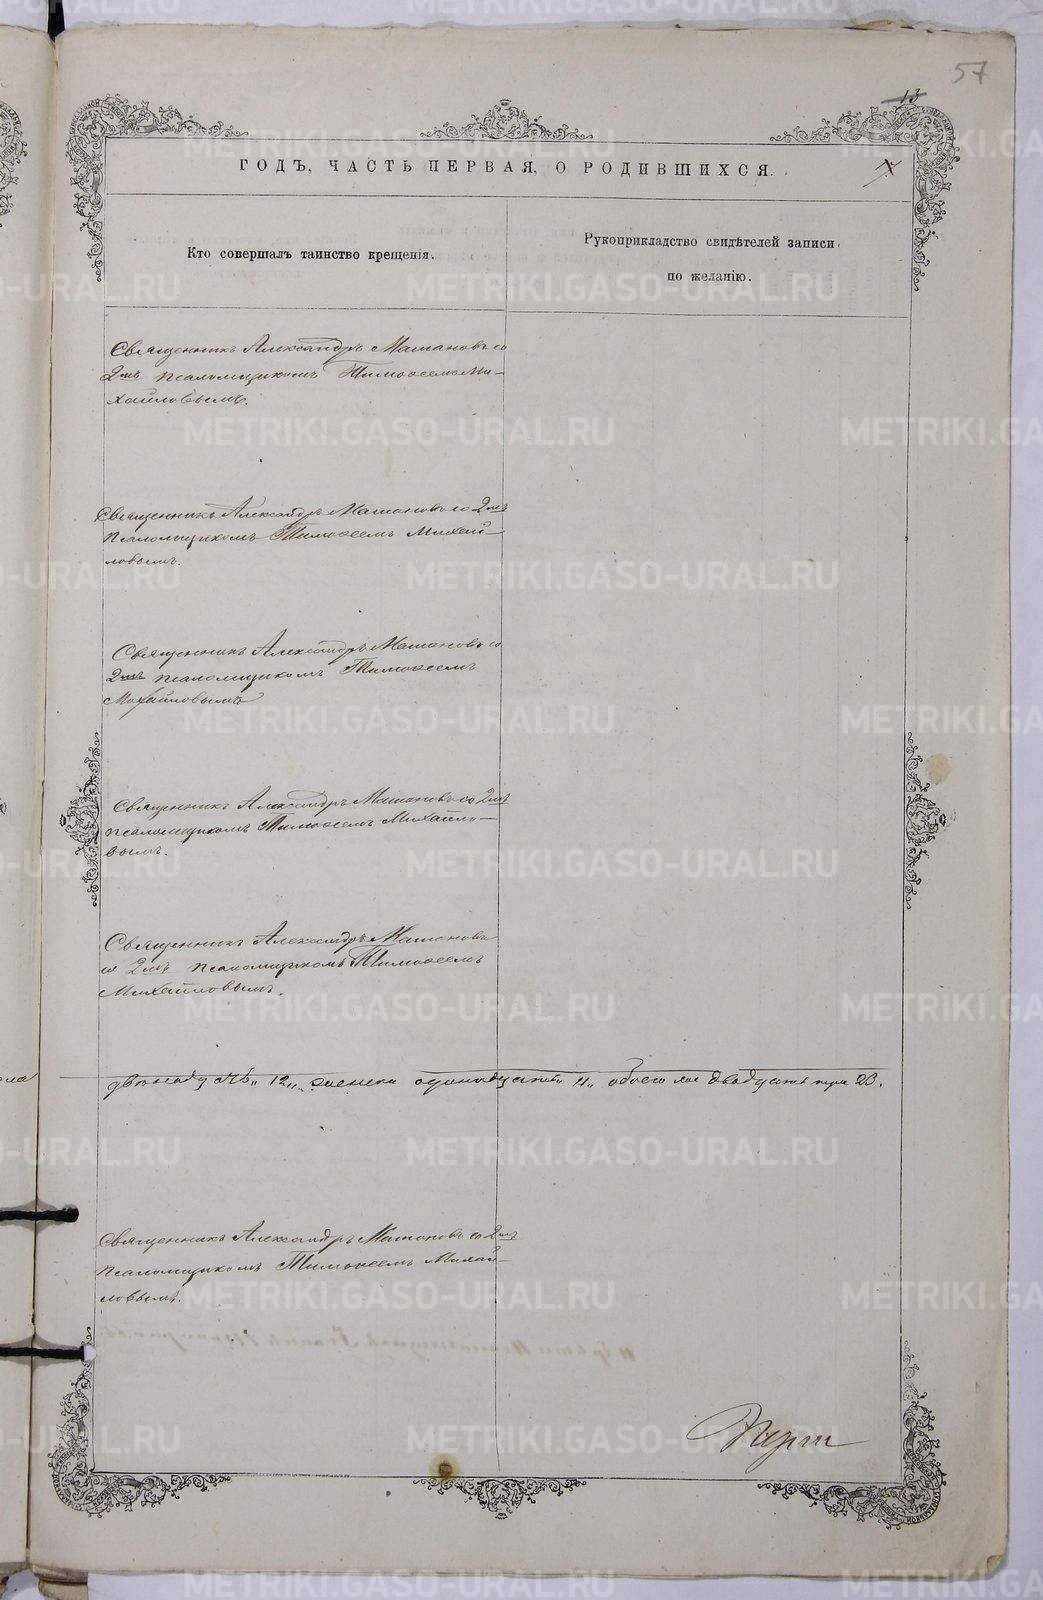 57
13
ГОДЪ, ЧАСТЬ ПЕРВАЯ, О РОДИВШИХСЯ.
Кто совершалъ таинство крещенія.
Рукоприкладство свидѣтелей записи
по желанію.
Священникъ Александръ Матановъ со
2мъ псаломщикомъ Тимоѳеемъ Ми-
хайловымъ.
Священникъ Александръ Матановъ со 2мъ
псаломщикомъ Тимоѳеемъ Михай-
ловымъ.
Священникъ Александръ Матановъ со
2мъ псаломщикомъ Тимоѳеемъ
Михайловымъ
Священникъ Александръ Матановъ со 2мъ
псаломщикомъ Тимоѳеемъ Михайло-
вымъ.
Священникъ Александръ Матановъ
со 2мъ псаломщикомъ Тимоѳеемъ
Михайловымъ.
двѣнадцать „12„ женска одинадцать 11„ обоего пола двадцать три 23.
Священникъ Александръ Матановъ со 2мъ
псаломщикомъ Тимоѳеемъ Михай-
ловымъ.
METRIKI.GASO-URAL.RU